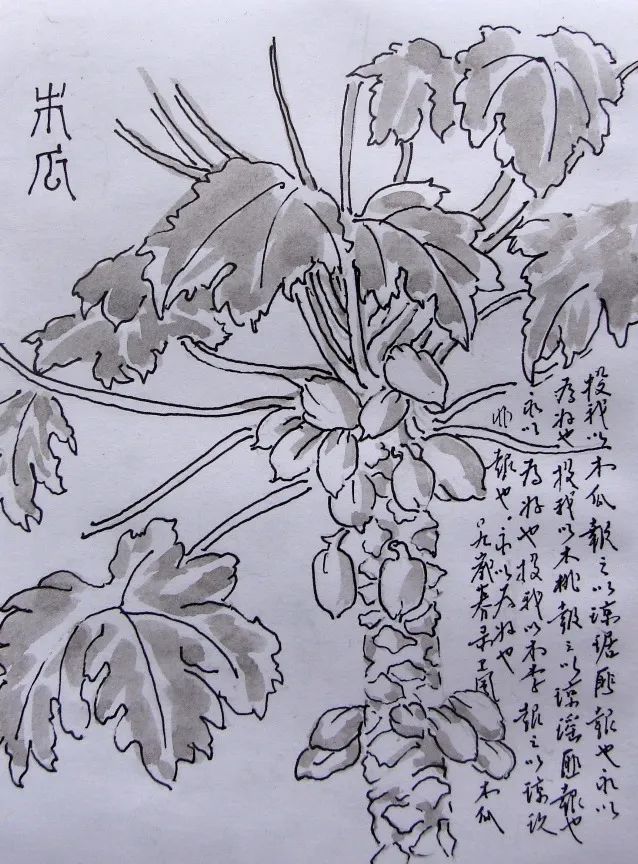 木瓜
投我以木瓜報之以琼琚匪報也永以
為好也投我以木桃報之以琼瑶匪報也
永以為好也投我以木李報之以琼玖
匪報也。永以为好也
歲春录 木瓜